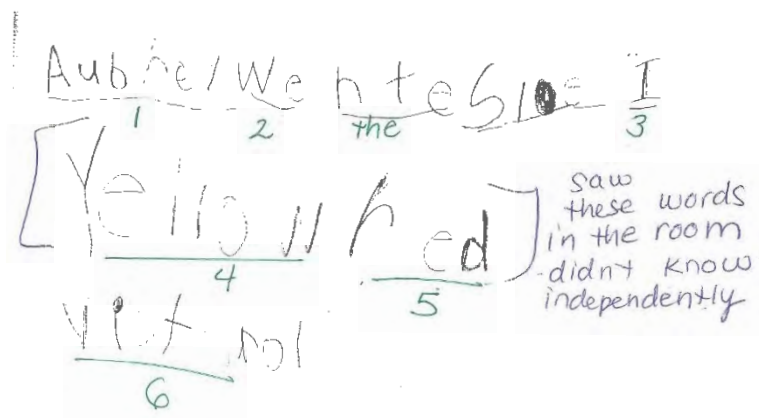 We n te I
1 2 the 3
Yellow red
4 5
saw
these words
in the room
didn't know
independently
6